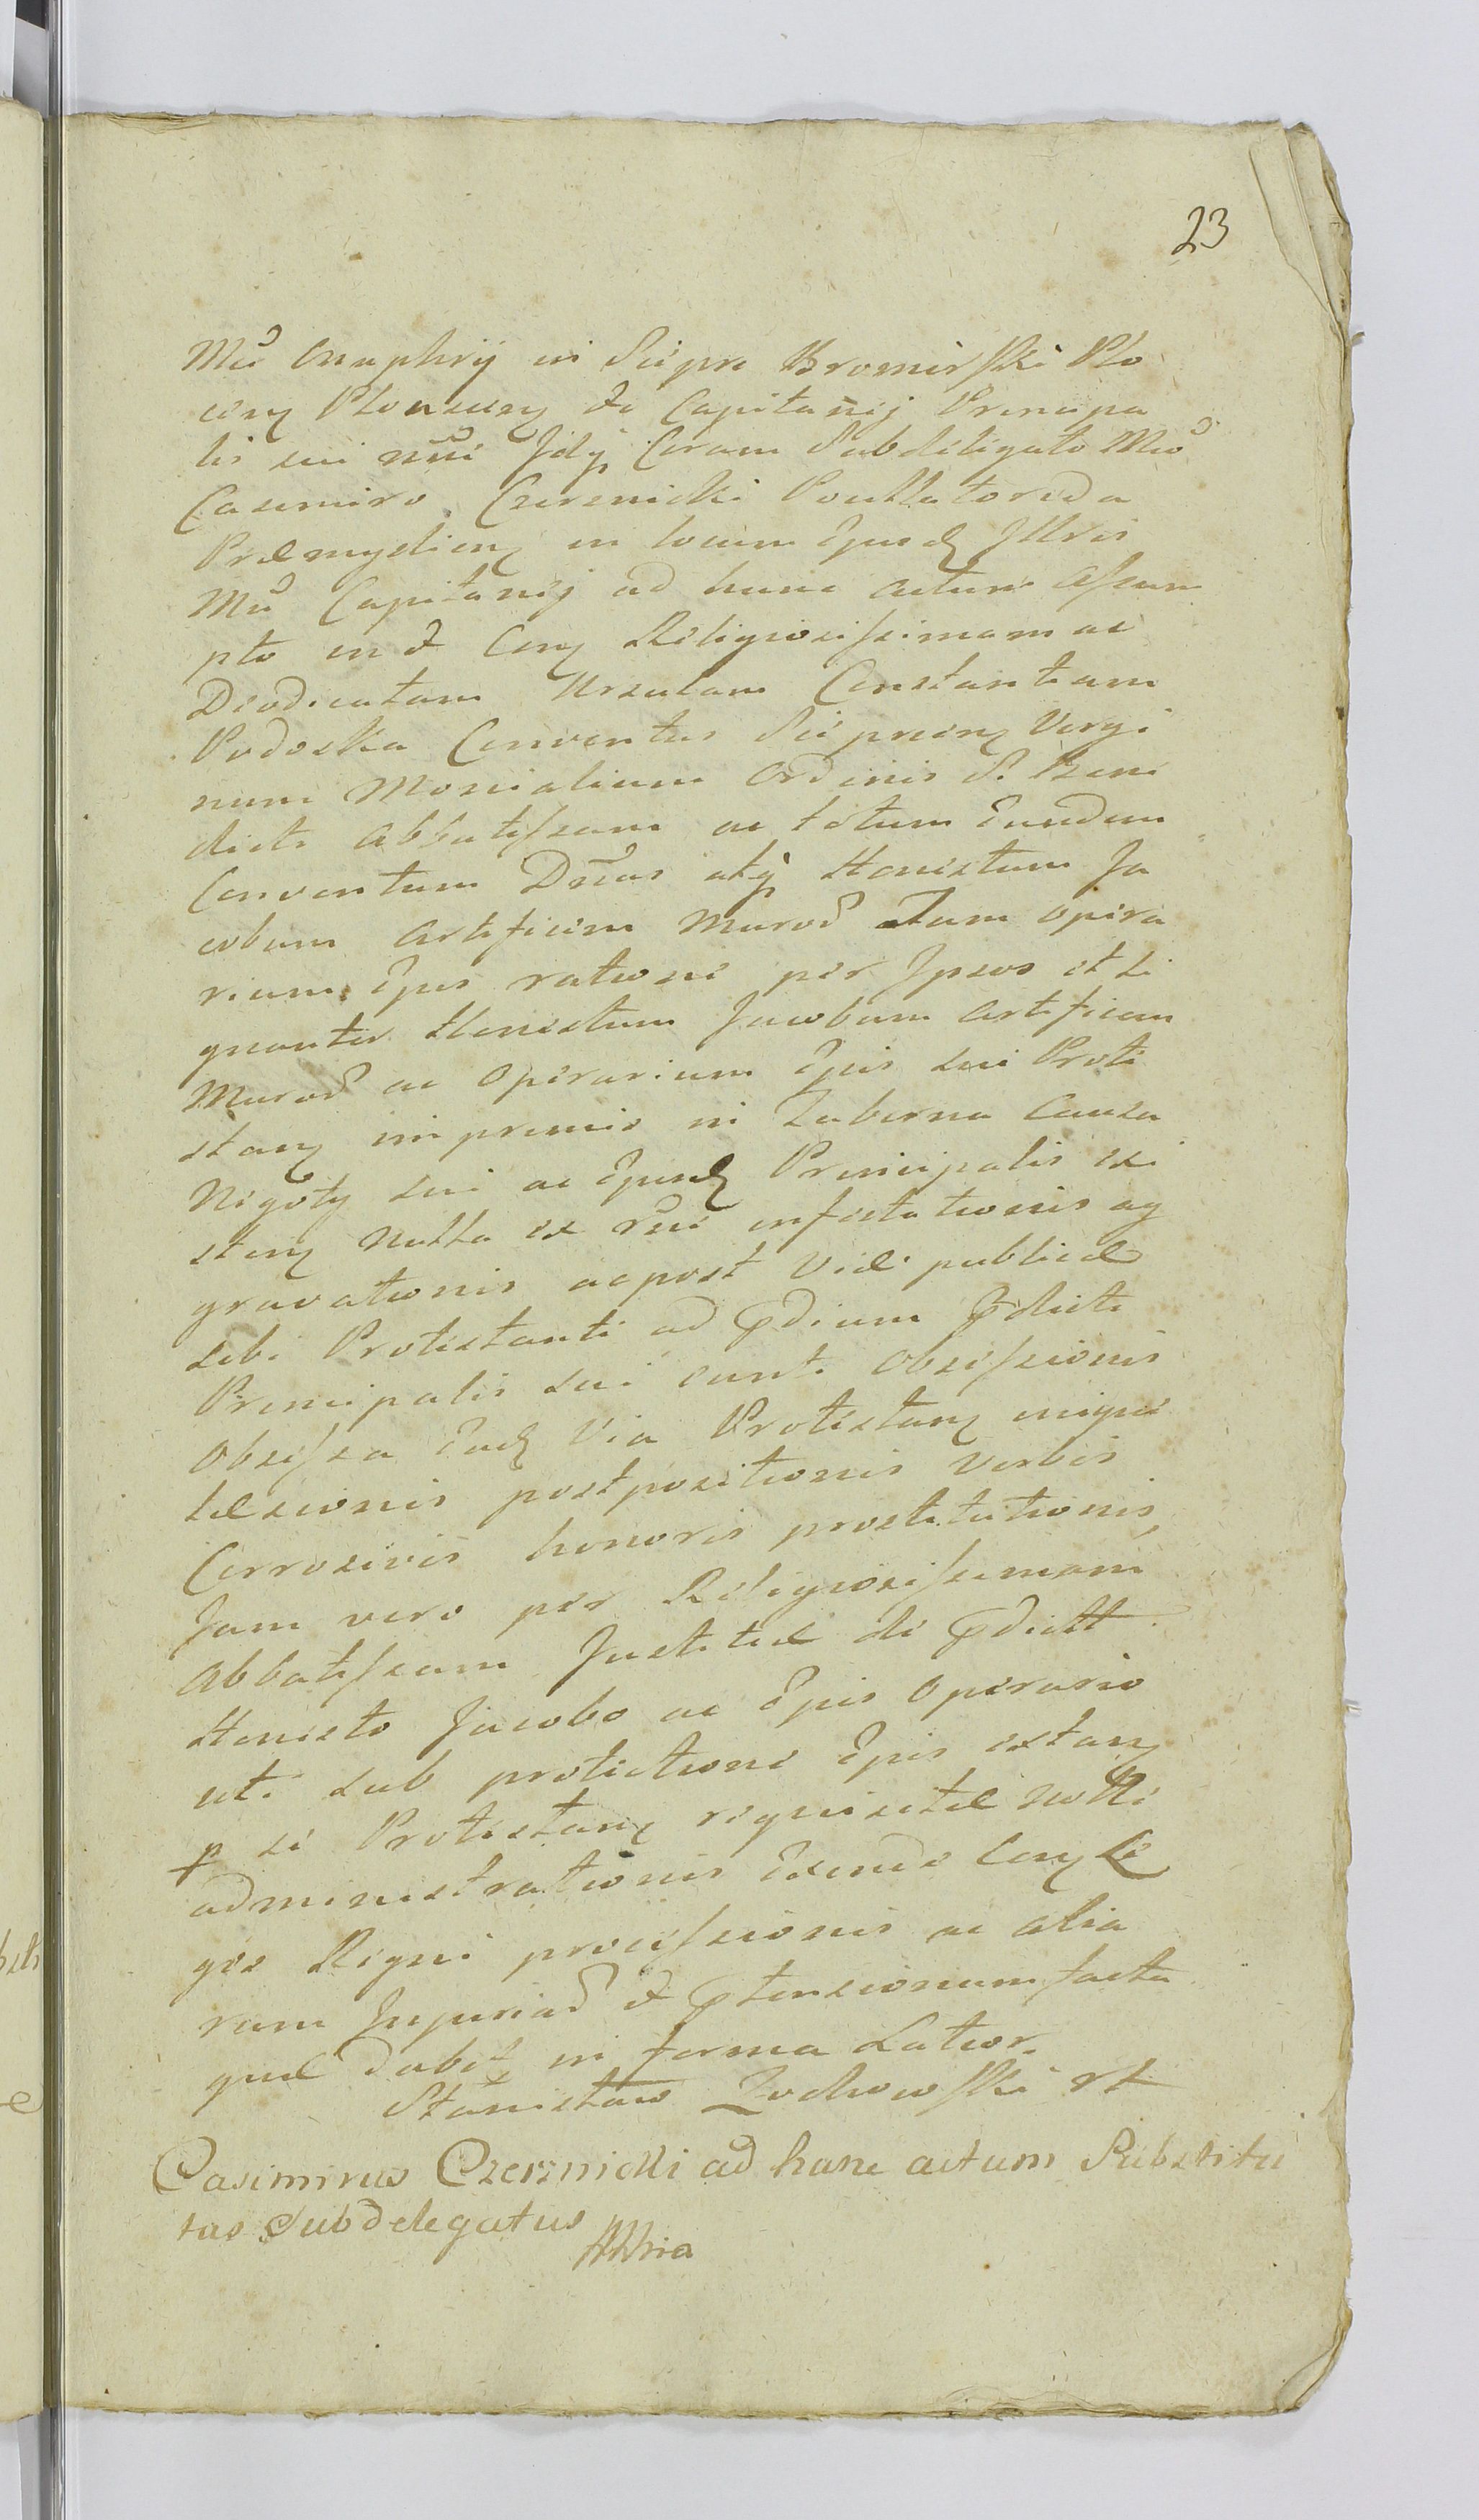 23
Mci Onuphrij in Sierpc Bromirski Plo
cen Plonscen & Capitanej Principa
lis sui nui Jdq Coram Subdelegato Mco
Casimiro Czerznicki
in locum Ejusd Jllris
Mci Capitanej ad hunc actum assum
pto in & Con Religiosissimam ac
Deodicatam Ursulam Constantiam
Podoska Conventus Sierpcien Virgi
num Monialium Ordinis S. Bene
dicti Abbatissam ac totum Eundem
Conventum Dnas atq Honestum Ja
cobum Artificem Muror Tum opera
rium Ejus ratione per Ipsos et si
gnanter Honestum Jacobum Artificem
Muror ac Operarium Ejus sui Prote
stan imprimis in Taberna Causa
Negoty sui ac Ejusd Principalis exi
sten nulla ex rne infestationis ag
gravationis ac post Viæ publicæ
sibi Protestanti ad prdium prdicti
Principalis sui eunti Obsessionis
Obsessa Ead Via Protestan
læsionis postpositionis Verbis
Corrosivis honoris prostitutionis
Jam vero per Religiosissimam
Abbatissam Justitiæ de prdicto
Honesto Jacobo ac Ejus Operario
uti sub protectione Ejus extan
p se Protestan requisitæ
administrationis Eundo Con Le
ges Regni processionis ac alia
rum Injuriar & prtensionum facta
quæ dabit in forma Latior.
Stanisław Zochowski
Casimirus Czerznicki ad hunc actum Substitu
tus Subdelegatus